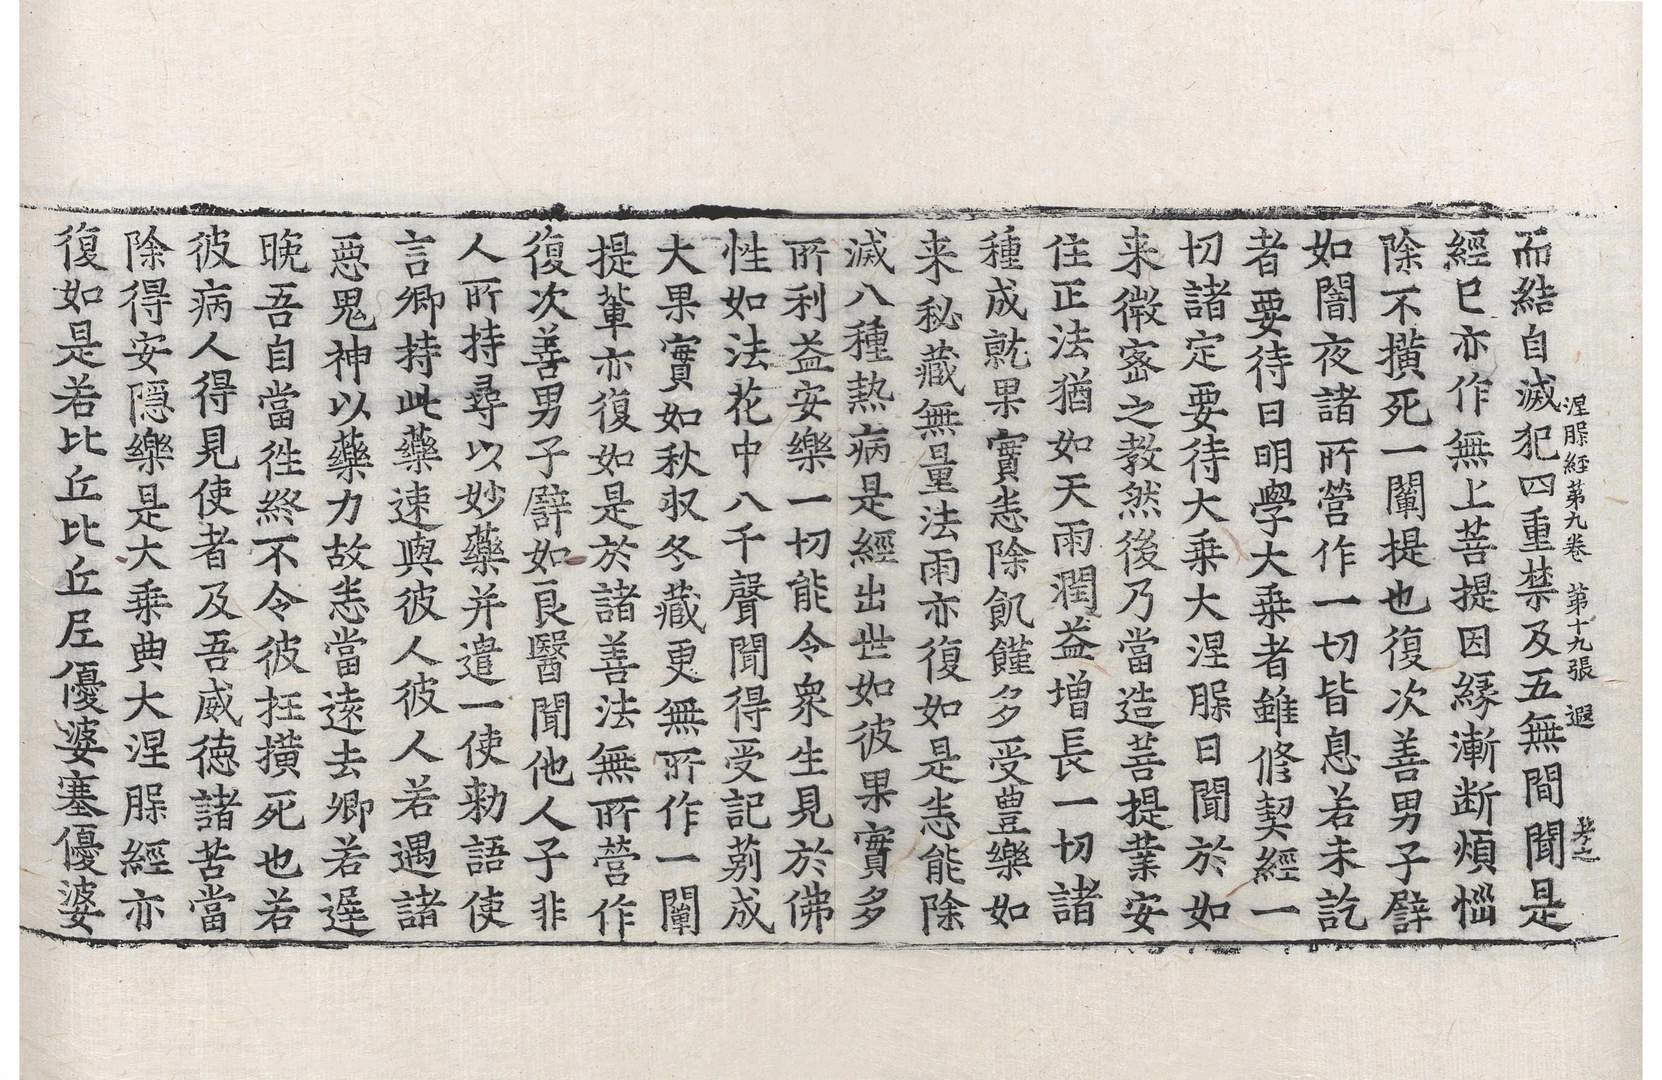 涅脲經第九卷　第十九張　遐
而結自滅犯四重禁及五無間聞是
經已亦作無上菩提因縁漸断煩惱
除不撗死一闡提也復次善男子譬
如闇夜諸所營作一切皆息若未訖
者要待日明學大乗者雖修契經一
切諸定要待大乗大涅脲日聞於如
来微宻之教然後乃當造菩提業安
住正法猶如天雨潤益增長一切諸
種成就果實悉除飢饉多受豊樂如
来秘藏無量法雨亦復如是悉能除
滅八種熱病是經出世如彼果實多
所利益安樂一切能令衆生見於佛
性如法花中八千聲聞得受記莂成
大果實如秋収冬藏更無所作一闡
提輩亦復如是於諸善法無所營作
復次善男子譬如良醫聞他人子非
人所持尋以妙藥并遣一使勑語使
言卿持此藥速與彼人彼人若遇諸
惡鬼神以藥力故悉當遠去卿若遲
晚吾自當徃終不令彼抂撗死也若
彼病人得見使者及吾威德諸苦當
除得安隱樂是大乗典大涅脲經亦
復如是若比丘比丘尼優婆塞優婆